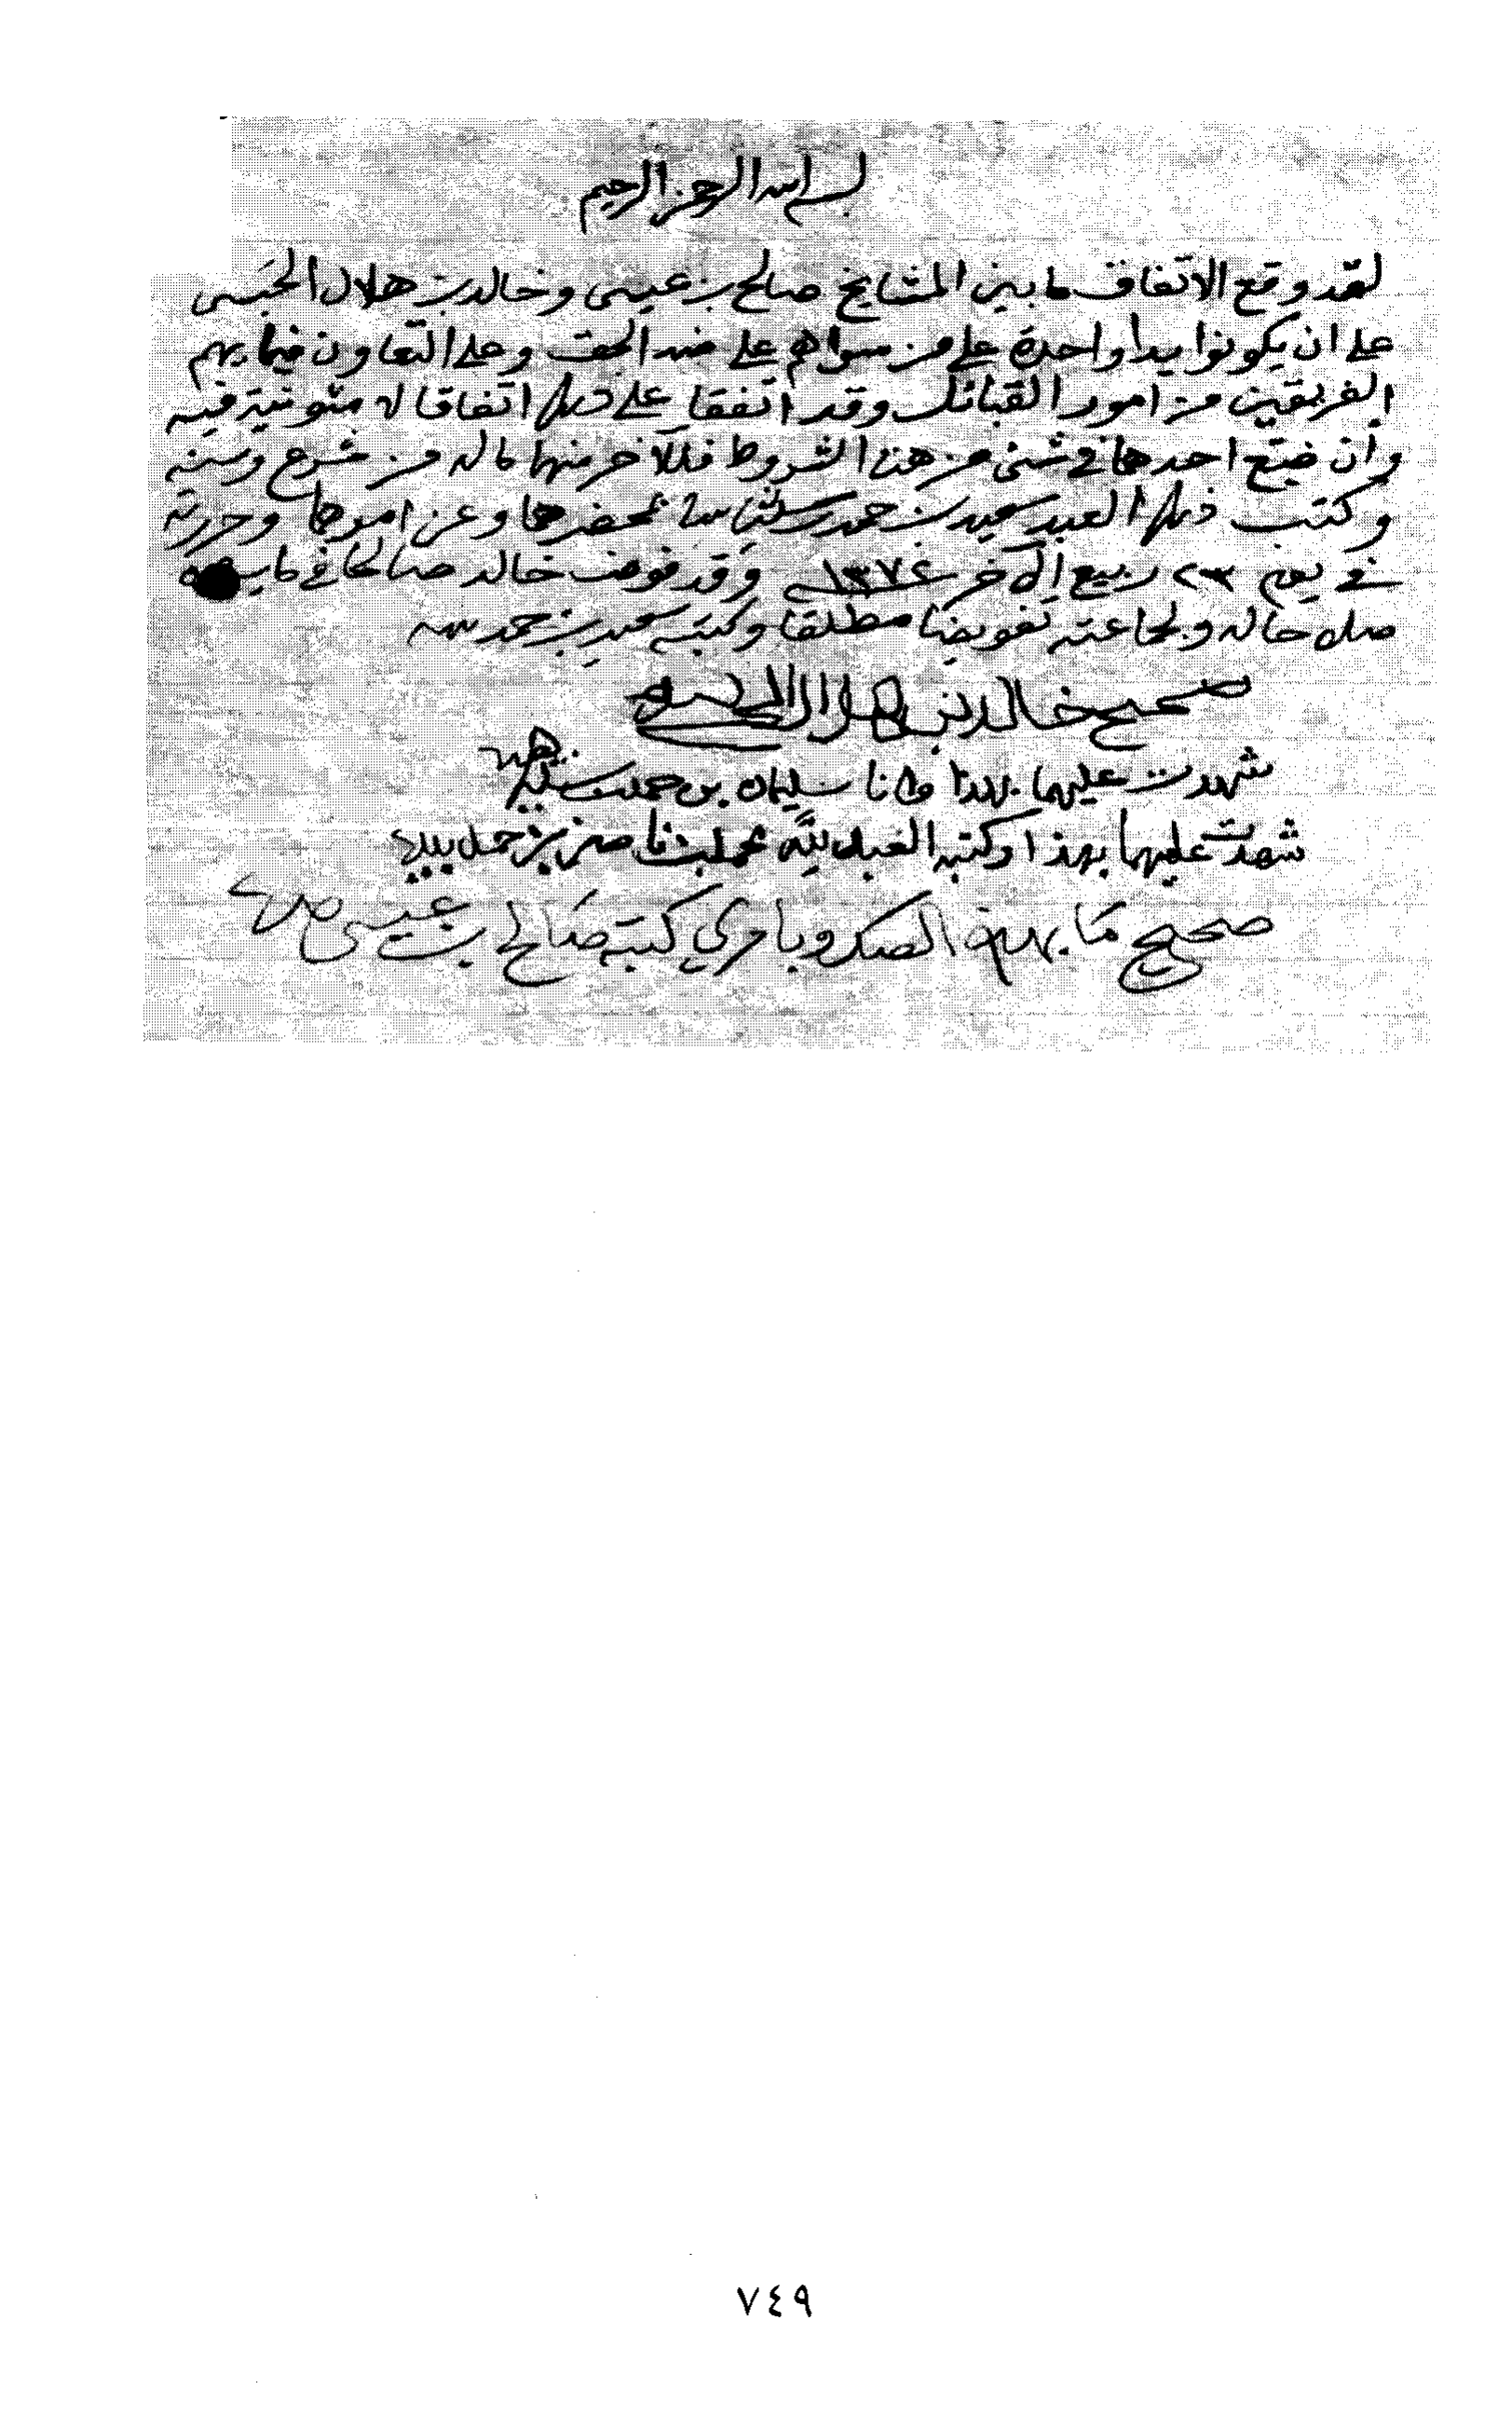 بسم الله الرحمن الرحيم
لقد وقع الاتفاق ما بين المشايخ صالح بن عيسى وخالد بن هلال الحبسي
على ان يكونوا يدا واحدة على من سواهم على ضد الحق وعلى التعاون فيما يهم
الفريقين من امور القبائل وقد اتفقا على ذلك اتفاقا لا مثونية فيه
وان ضيّع احدهما في شيء من هذه الشروط فللآخر منهما ماله من شرع وسنه
وكتب ذلك العبد سعيد بن حمد بمحضرهما وعن امرهما وحررته
في يوم ٢٣ ربيع الآخر ١٣٧٤ وقد فوض خالد صالحا في ما
له ولجماعته تفويضا مطلقا وكتبه سعيد بن حمد بيده
صحيح خالد بن هلال
شهدت عليهما بهذا وانا سليمان بن حمد
شهدت عليهما بهذا وكتبه العبد لله محمد بن ناصر بن حمد بيده
صحيح ما بهذه الصك وبامري كتبه صالح بن عيسى
٧٤٩